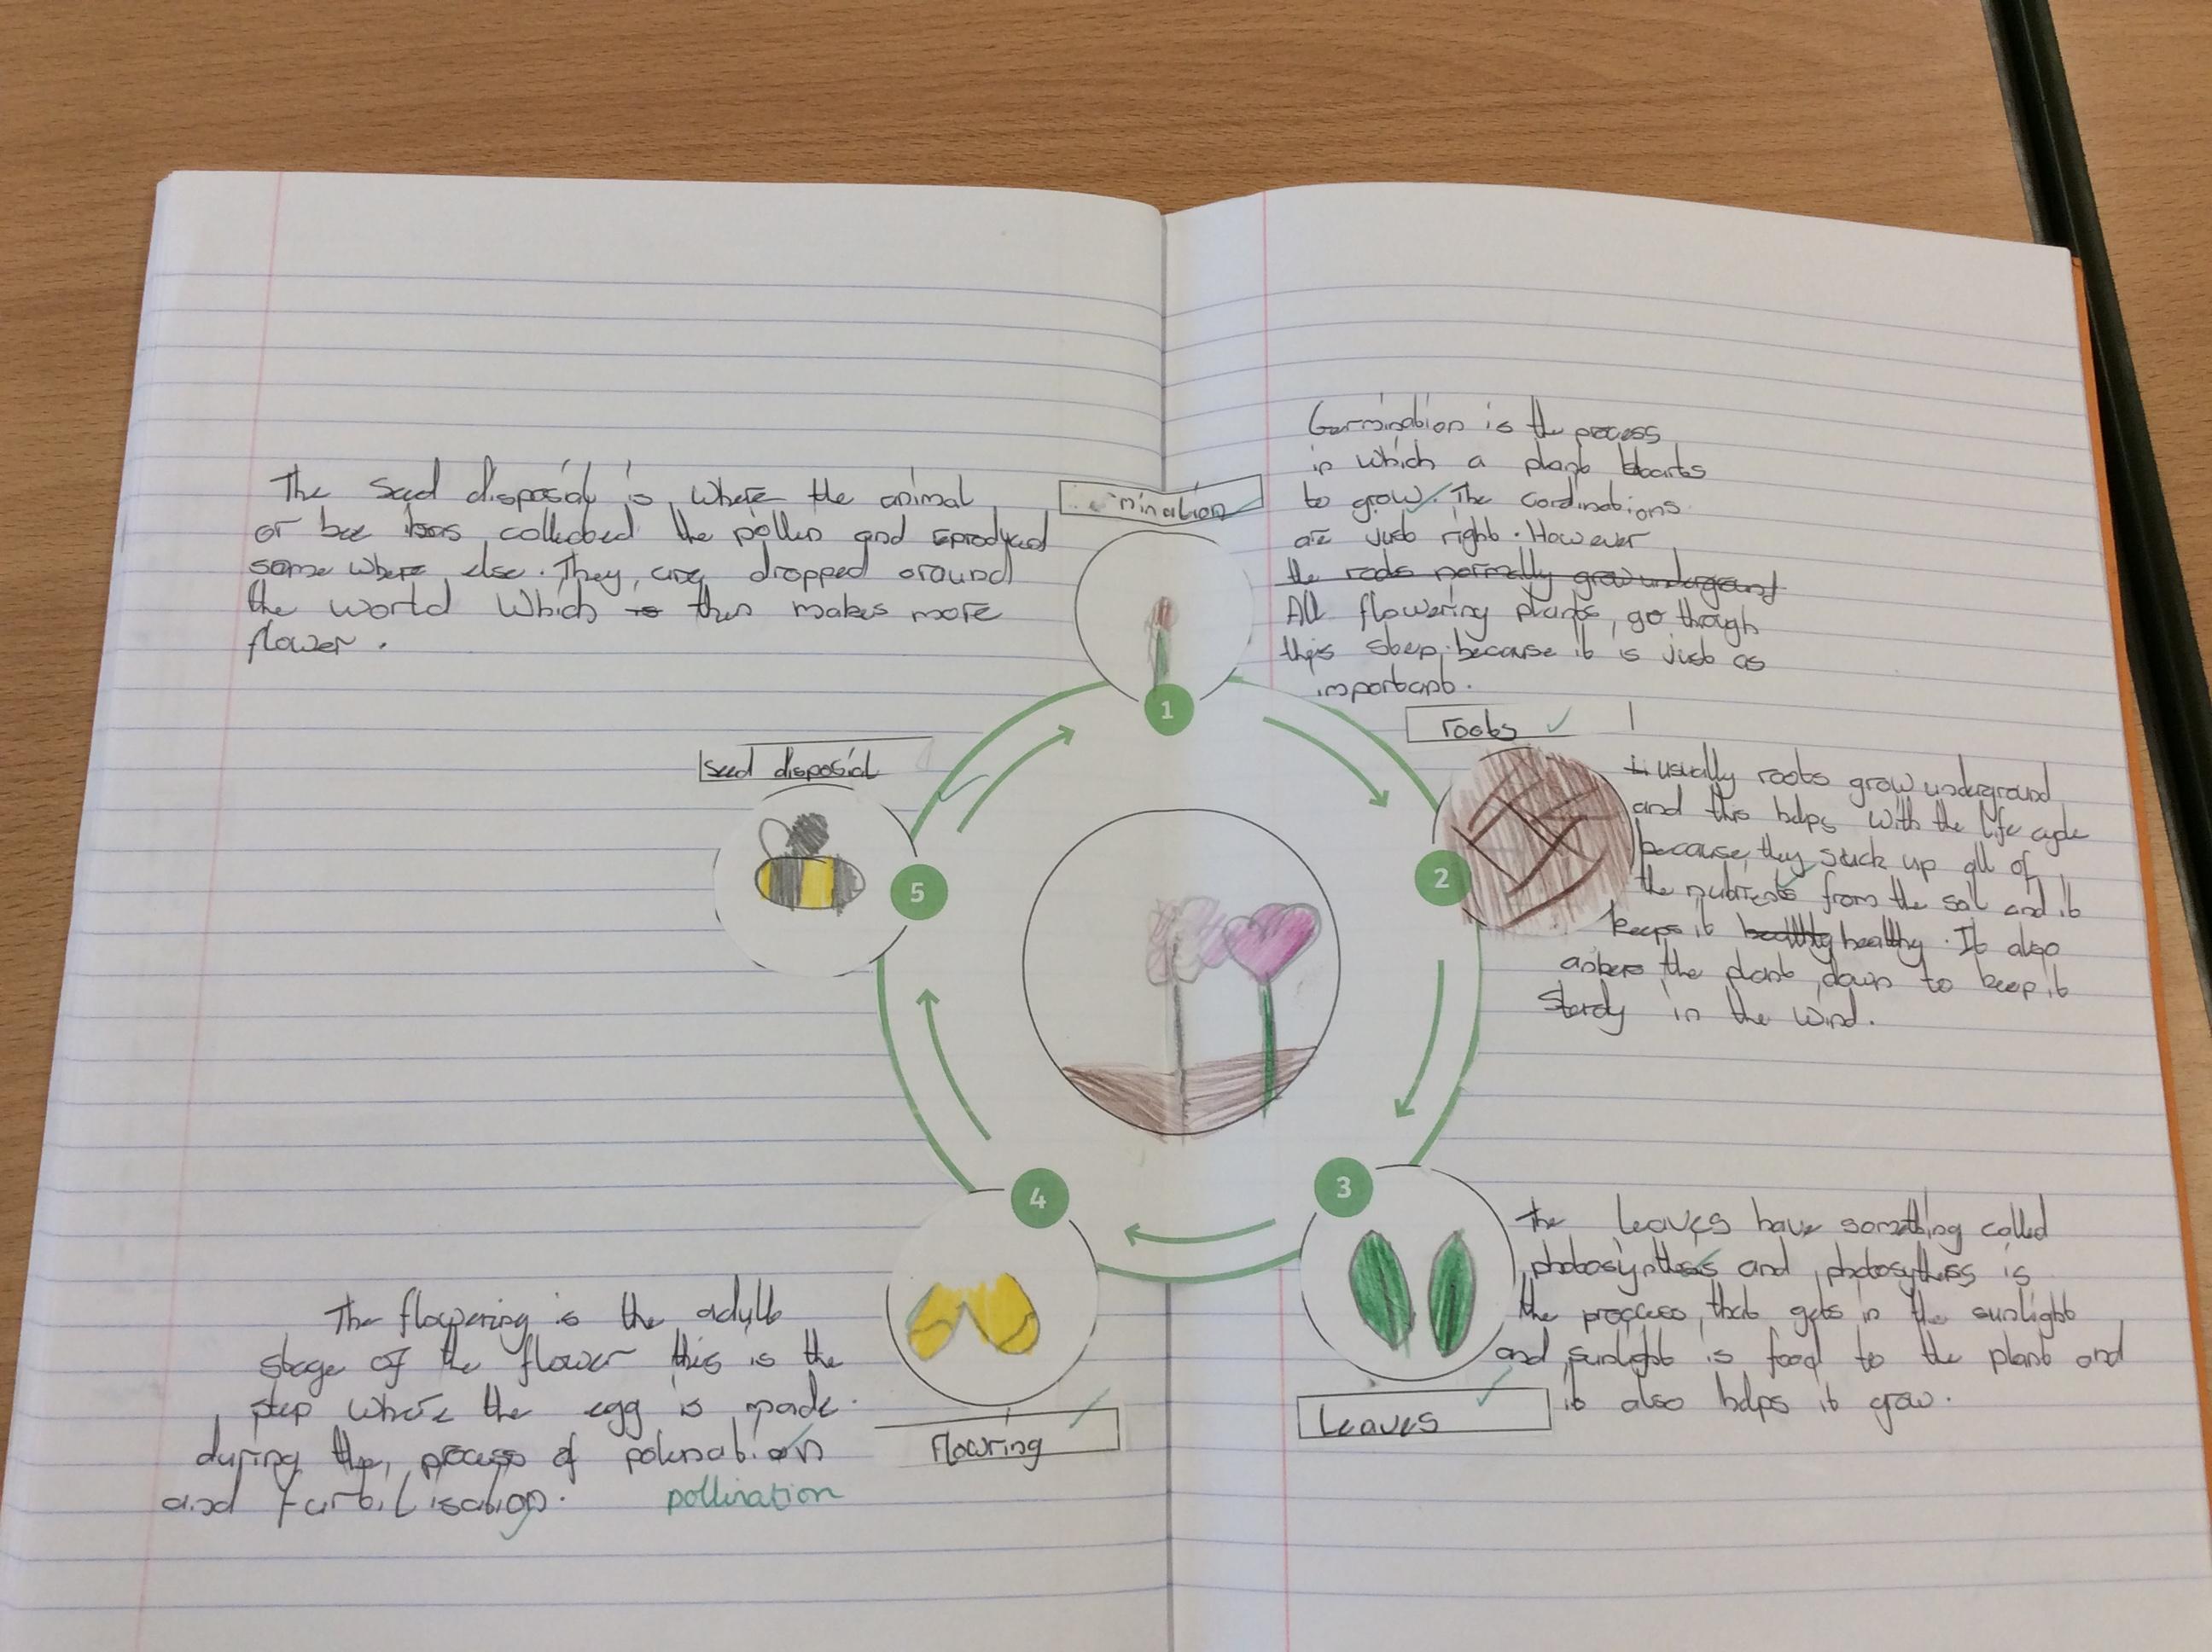 Germination is the process
in which a plant starts
to grow. The cordinations
are just right. However
the roots normally grow underground
All flowering plants, go through
this step because it is just as
important.
mination
1
roots
usually roots grow underground
and this helps with the life cycle
because they suck up all of
the nutrients from the soil and it
keeps it healthy healthy. It also
ankers the plant down to keep it
sterdy in the wind.
2
3
The leaves have something called
photosynthesis and photosythess is
the proccess that gets in the sunlight
and sunlight is food to the plant and
it also helps it grow.
Leaves
4
flowring
The flowering is the adult
stage of the flower this is the
step where the egg is made.
during the process of polination
and furtilisation.
pollination
5
seed disposial
The seed disposial is where the animal
or bee has collected the pollen and reproduced
some where else. They are dropped around
the world which is then makes more
flower.